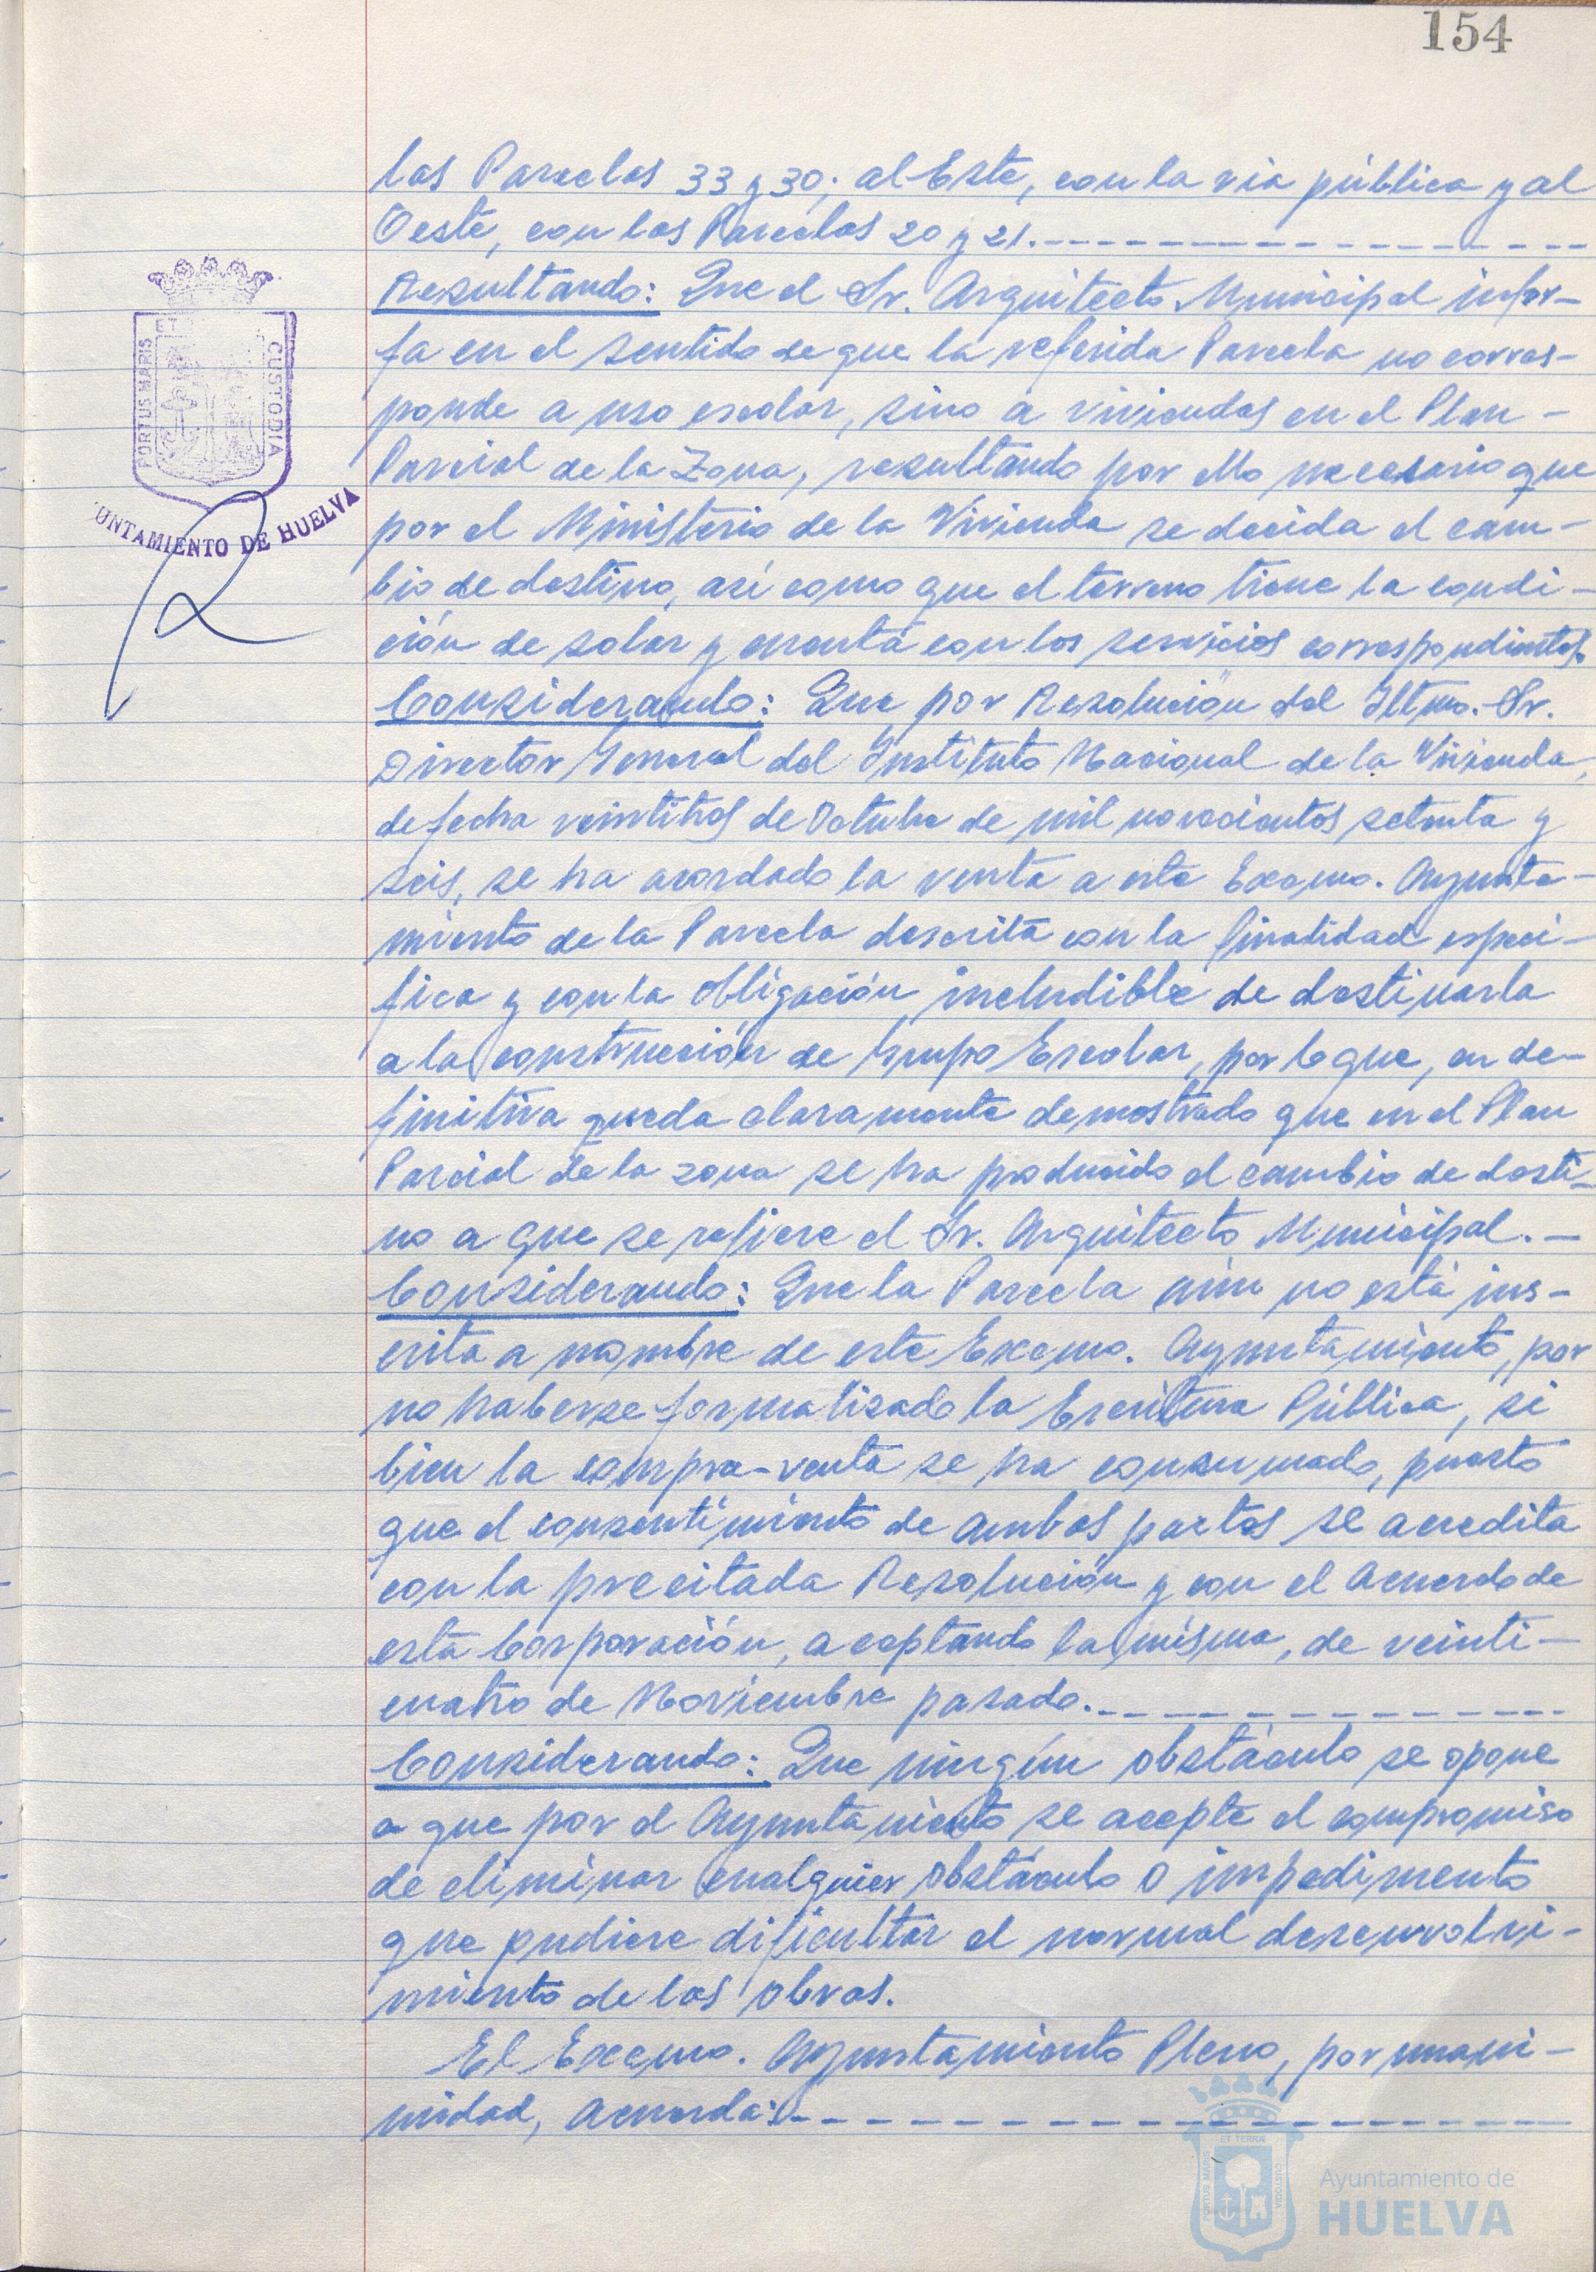 154
las Parcelas 33 y 30; al Este, con la via pública y al
Oeste, con las Parcelas 20 y 21.
Resultando: Que el Sr. Arquitecto Municipal infor-
fa en el sentido de que la referida Parcela no corres-
ponde a uso escolar, sino a viviendas en el Plan
Parcial de la Zona, resultando por ello necesario que
por el Ministerio de la Vivienda se decida el cam-
bio de destino, así como que el terreno tiene la condi-
ción de solar y cuenta con los servicios correspondientes.
Considerando: Que por Resolución del Iltmo. Sr.
Director General del Instituto Nacional de la Vivienda,
de fecha veintitrés de Octubre de mil novecientos setenta y
seis, se ha acordado la venta a este Excmo. Ayunta-
miento de la Parcela descrita con la finalidad especí-
fica y con la obligación ineludible de destinarla
a la construcción de Grupo Escolar, por lo que, en de-
finitiva queda claramente demostrado que en el Plan
Parcial de la zona se ha producido el cambio de desti-
no a que se refiere el Sr. Arquitecto Municipal.
Considerando: Que la Parcela aún no está ins-
crita a nombre de este Excmo. Ayuntamiento, por
no haberse formalizado la Escritura Pública, si
bien la compra-venta se ha consumado, puesto
que el consentimiento de ambas partes se acredita
con la precitada Resolución y con el Acuerdo de
esta Corporación, aceptando la misma, de veinti-
cuatro de Noviembre pasado.
Considerando: Que ningún obstáculo se opone
a que por el Ayuntamiento se acepte el compromiso
de eliminar cualquier obstáculo o impedimento
que pudiere dificultar el normal desenvolvi-
miento de las obras.
El Excmo. Ayuntamiento Pleno, por unani-
midad, acuerda:
PORTUS MARIS
ET
CUSTODIA
UNTAMIENTO DE HUELVA
PORTUS MARIS
ET TERRAE
CUSTODIA
Ayuntamiento de
HUELVA